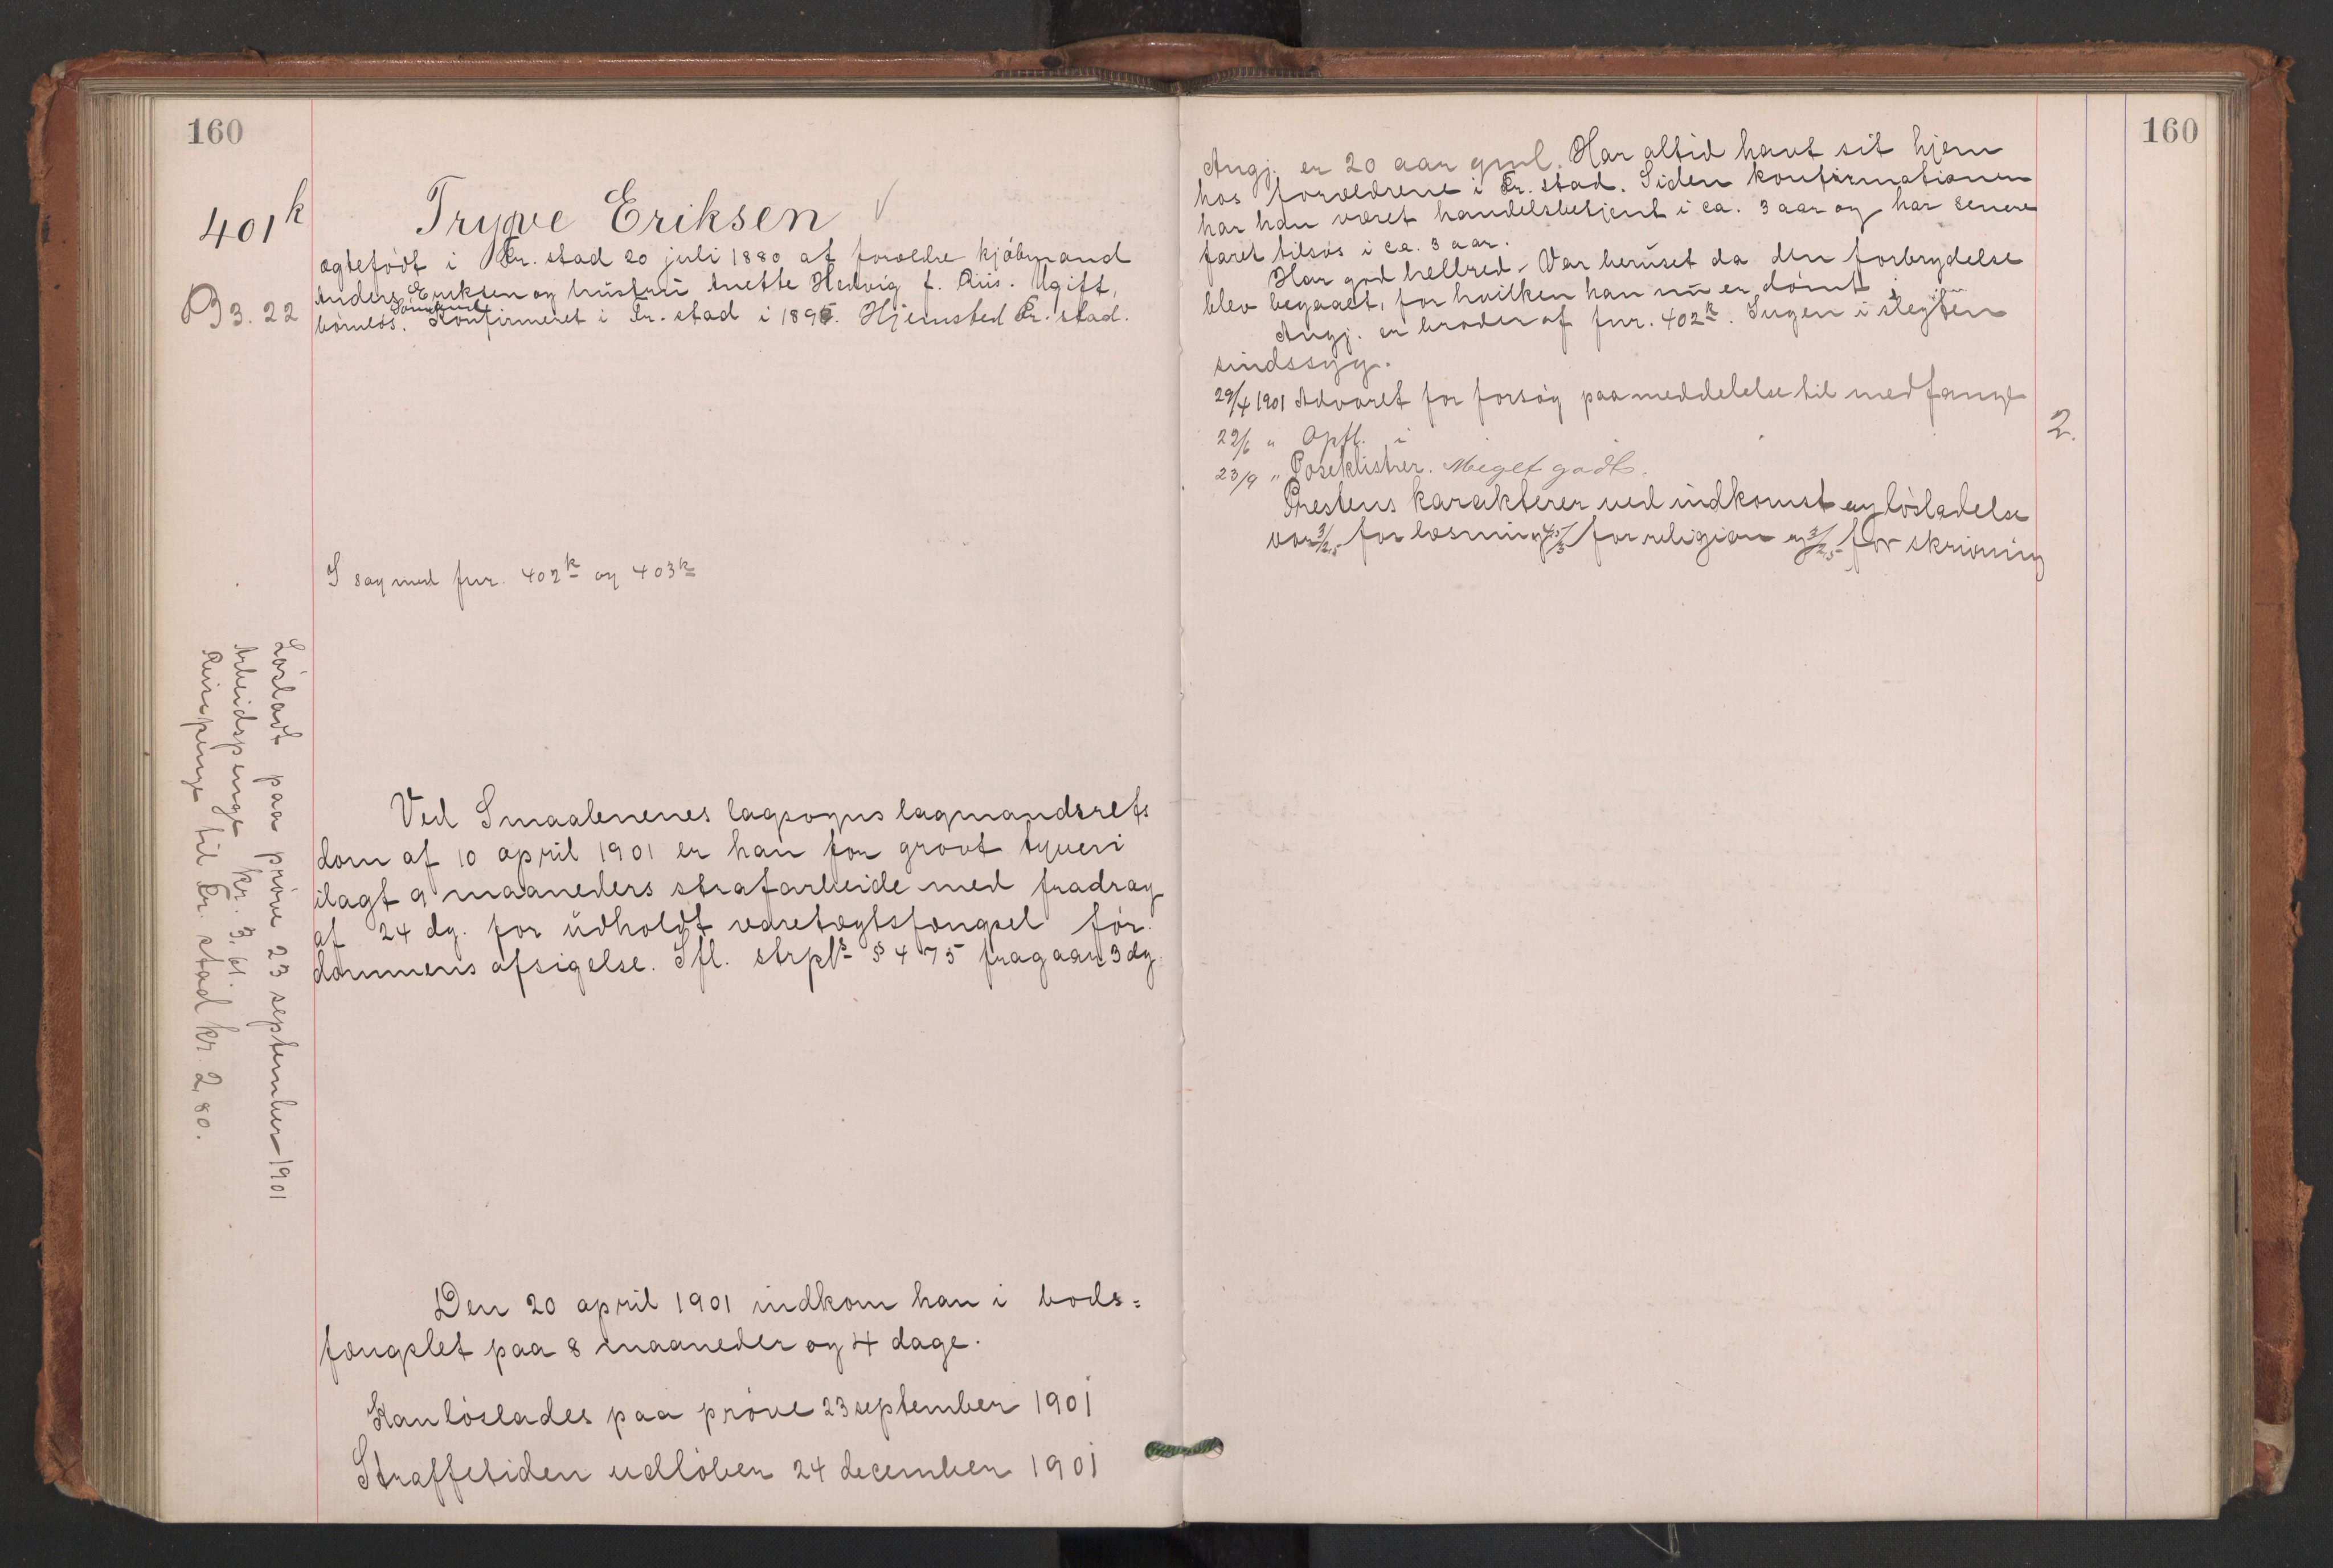 160
401 k
Trygve Eriksen ✓
B 3. 22
ægtefødt i Fr. stad 20 juli 1880 af forældre kjøbmand
Anders Eriksen og hustru Anette Hedvig f. Riis. Ugift,
Sømand
børnløs. Konfirmeret i Fr. stad i 1895. Hjemsted Fr. stad.
I sag med fnr. 402 k og 403 k
Løsladt paa prøve 23 september 1901
Arbeidspenge kr. 3,61.
Reisepenge til Fr. stad kr. 2,80.
Ved Smaalenenes lagsogns lagmandsrets
dom af 10 april 1901 er han for grovt tyveri
ilagt 9 maaneders strafarbeide med fradrag
af 24 dg. for udholdt varetægtsfængsel før
dommens afsigelse. Ifl. strpls § 475 fragaar 3 dg.
Den 20 april 1901 indkom han i bods=
fængslet paa 8 maaneder og 4 dage.
Kan løslades paa prøve 23 september 1901
Straffetiden udløber 24 december 1901
160
Angj. er 20 aar gml. Har altid havt sit hjem
hos forældrene i Fr. stad. Siden konfirmationen
har han været handelsbetjent i ca. 3 aar og har senere
faret tilsøs i ca. 3 aar.
Har god helbred. Var beruset da den forbrydelse
blev begaaet, for hvilken han nu er dømt.
Angj. er broder af fnr. 402 k. Ingen i slegten
sindssyg.
29/4 1901 Advaret for forsøg paa meddelelse til medfange
22/6 " Opfl. i
2.
23/9 " Poseklistrer. Meget godt.
Prestens karakterer ved indkomst og løsladelse
var 3/2,5 for læsning, 4,5/3 for religion og 3/2,5 for skrivning